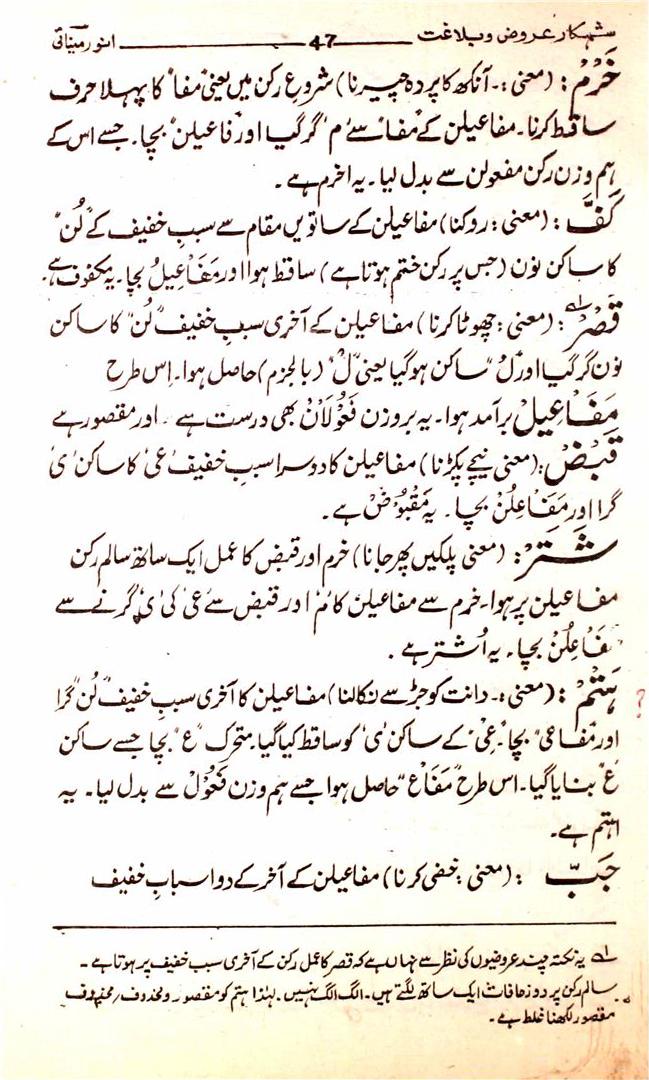 شہکار عروض و بلاغت ــــــ 47 ــــــ انور مینائی
خَرْم : (معنی :۔ آنکھ کا پردہ چیرنا) شروعِ رکن میں یعنی ’مفا‘ کا پہلا حرف
ساقط کرنا۔ مفاعیلن کے ’مفا‘ سے ’م‘ گر گیا اور ’فاعیلن‘ بچا۔ جسے اس کے
ہم وزن رکن مفعولن سے بدل لیا۔ یہ اخرم ہے ۔
کَفّ : (معنی : روکنا) مفاعیلن کے ساتویں مقام سے سببِ خفیف کے ”لُن“
کا ساکن نون (جس پر رکن ختم ہوتا ہے) ساقط ہوا اور مَفَاعِیلُ بچا۔ یہ مکفوف ہے۔
قَصْر ؂۱ : (معنی : چھوٹا کرنا) مفاعیلن کے آخری سببِ خفیف ”لُن“ کا ساکن
نون گر گیا اور ”لُ“ ساکن ہو گیا یعنی ”لْ“ (بالجزم) حاصل ہوا۔ اِس طرح
مَفَاعِیلْ برآمد ہوا۔ یہ بروزن فَعُوْلَانْ بھی درست ہے ۔ اور مقصور ہے
قَبْض : (معنی نیچے پکڑنا) مفاعیلن کا دوسرا سببِ خفیف ’عی‘ کا ساکن ’ی‘
گرا اور مَفَاعِلُنْ بچا۔ یہ مَقْبُوض ہے ۔
شَتَر : (معنی پلکیں پھر جانا) خرم اور قبض کا عمل ایک ساتھ سالم رکن
مفاعیلن پر ہوا۔ خرم سے مفاعیلن کا ’م‘ اور قبض سے ’عی‘ کی ’ی‘ گرنے سے
فَاعِلُنْ بچا۔ یہ اُشتر ہے ۔
ہَتْم : (معنی :۔ دانت کو جڑ سے نکالنا) مفاعیلن کا آخری سببِ خفیف ”لُن“ گرا ؟
اور ”مفاعی“ بچا۔ ”عِی“ کے ساکن ’ی‘ کو ساقط کیا گیا۔ متحرک ”ع“ بچا جسے ساکن
”عْ“ بنایا گیا۔ اس طرح ”مَفَاعْ“ حاصل ہوا جسے ہم وزن فَعُوْلْ سے بدل لیا۔ یہ
اہتم ہے۔
جَبّ : (معنی : خصی کرنا) مفاعیلن کے آخر کے دو اسبابِ خفیف
؂۱ یہ نکتہ چند عروضیوں کی نظر سے نہاں ہے کہ قصر کا عمل رکن کے آخری سبب خفیف پر ہوتا ہے ۔
سالم رکن پر دو زحافات ایک ساتھ لگتے ہیں۔ الگ الگ نہیں۔ لہٰذا ہتم کو مقصور و محذوف / محذوف
مقصور لکھنا غلط ہے ۔